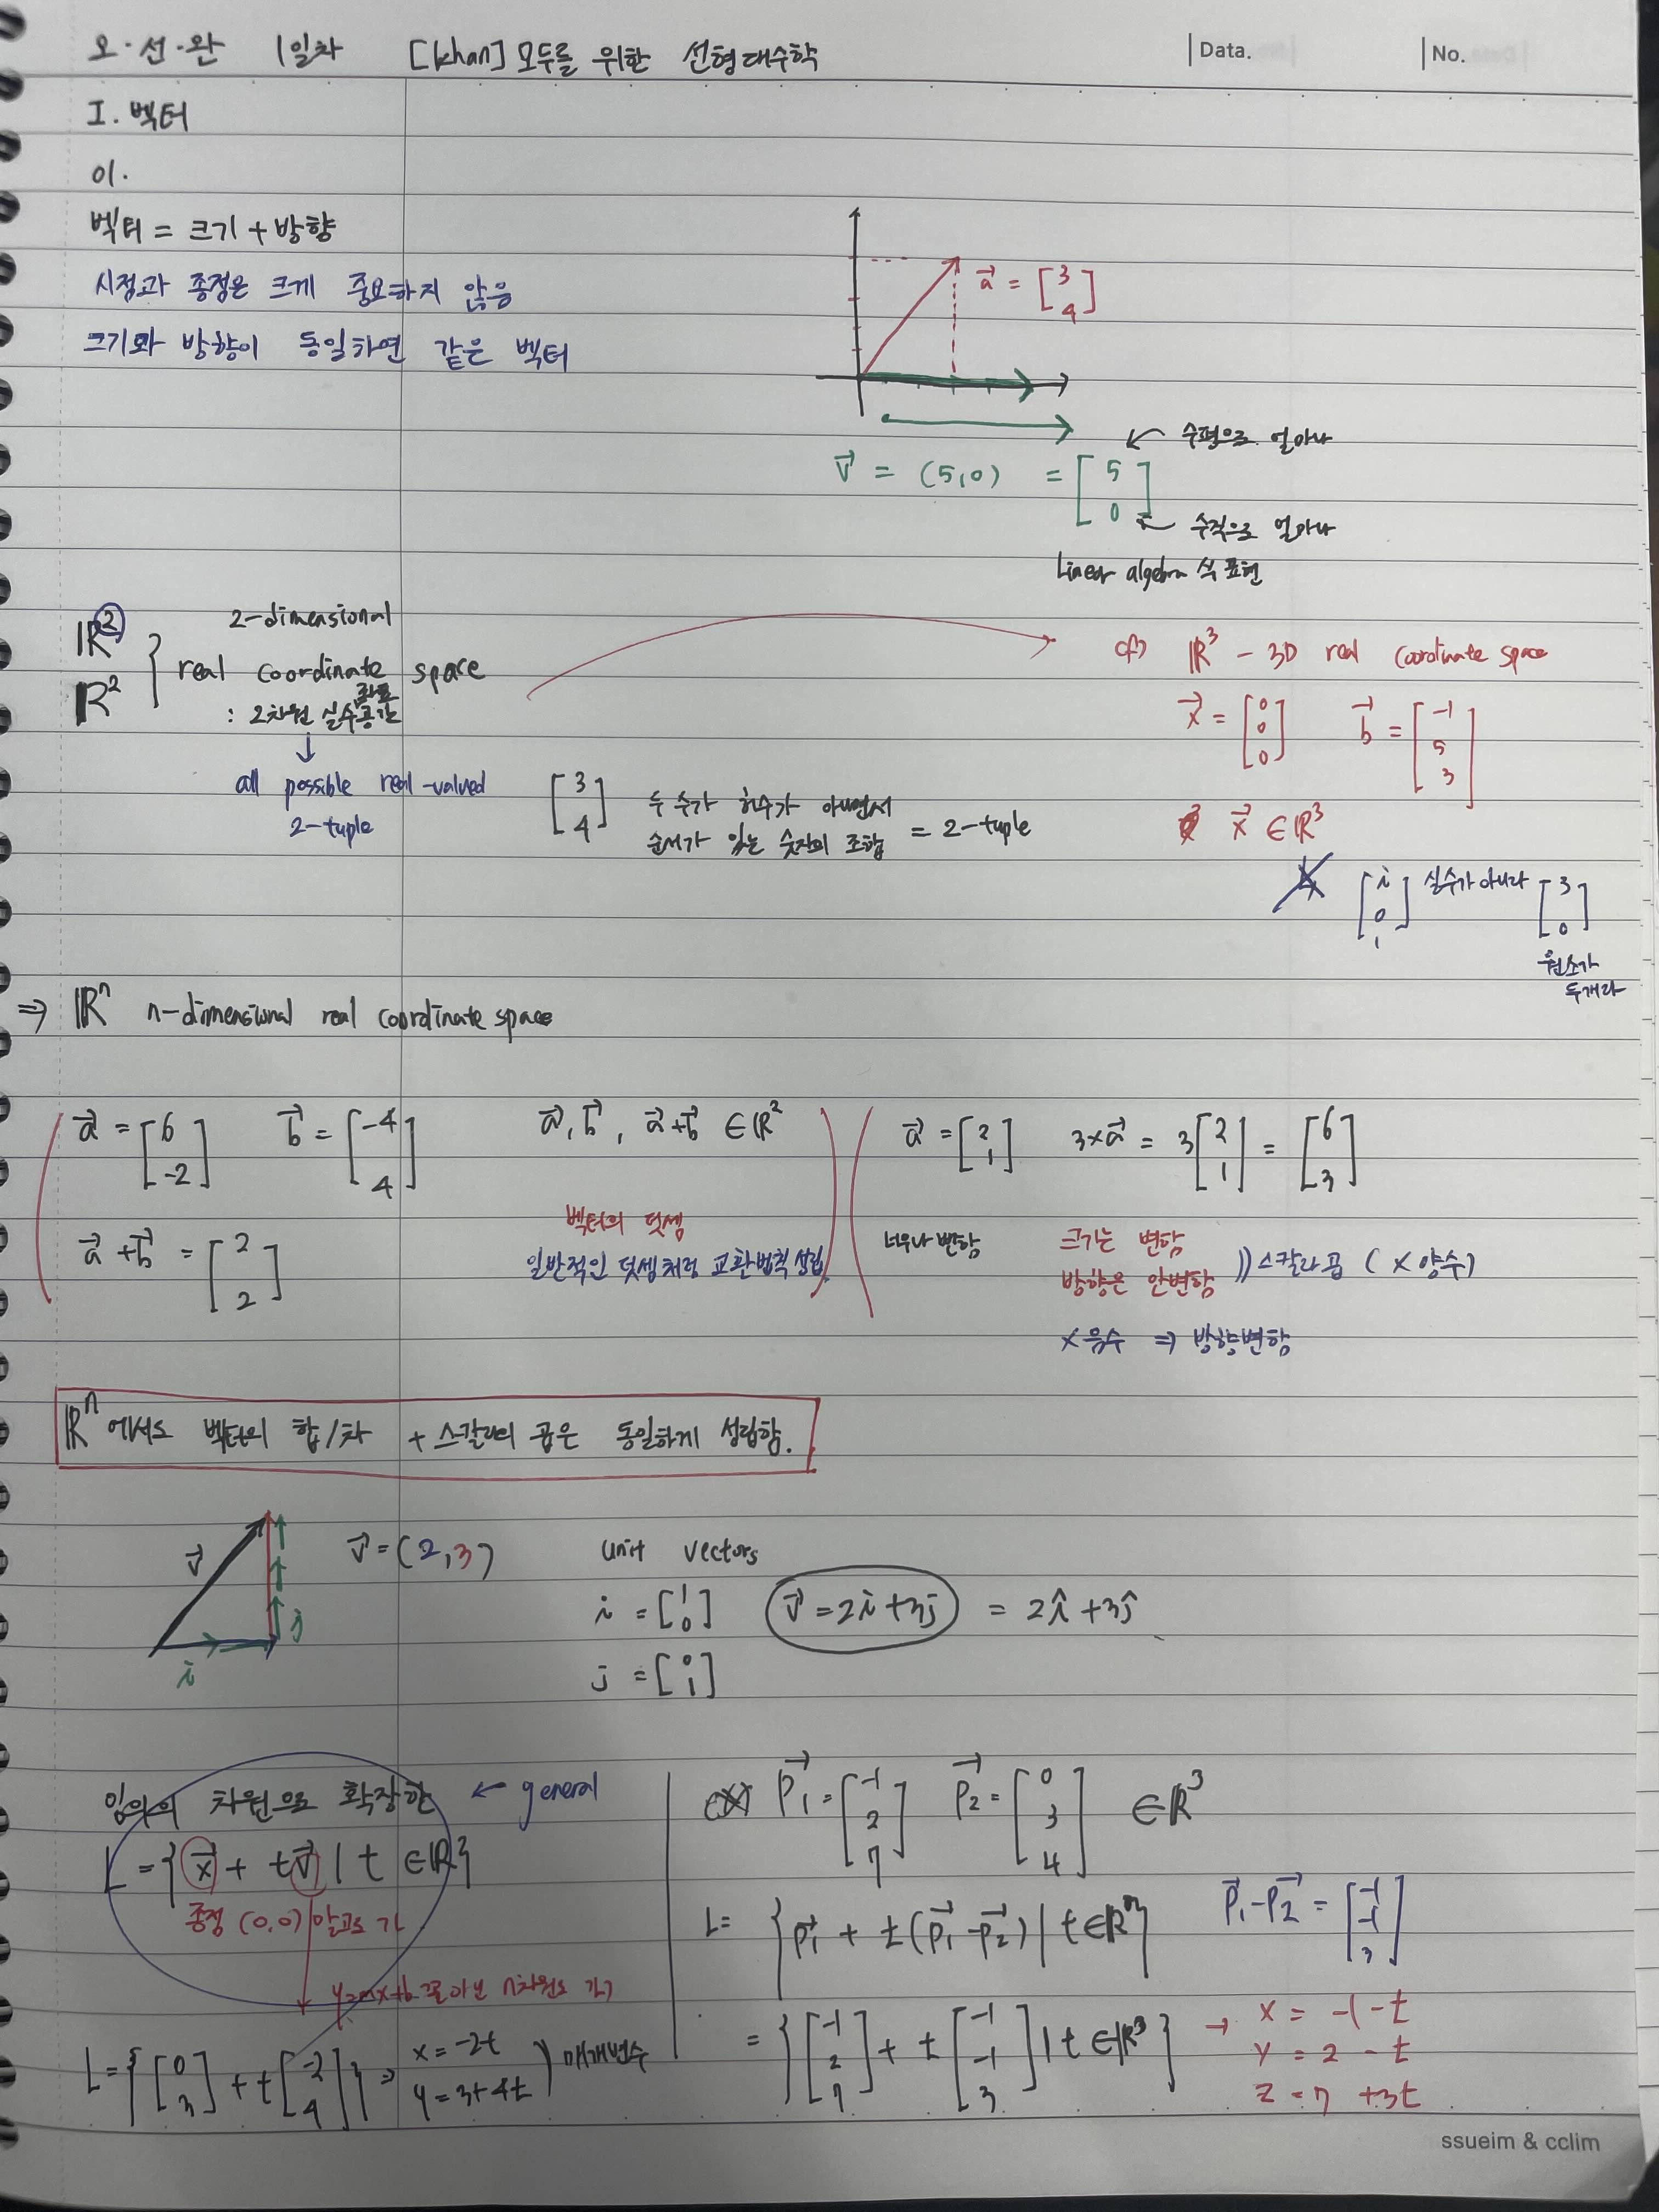 오·선·완 1일차 [khan] 모두를 위한 선형대수학
Data.
No.
I. 벡터
01.
벡터 = 크기 + 방향
시점과 종점은 크게 중요하지 않음
크기와 방향이 동일하면 같은 벡터
a⃗ = [3 4]
v⃗ = (5,0) = [5 0]
수평으로 얼마나
수직으로 얼마나
Linear algebra 식 표현
ℝ² ℝ² } 2-dimensional
real coordinate space
좌표
: 2차원 실수공간
↓
all possible real-valued
2-tuple
[3 4] 두 수가 허수가 아니면서
순서가 있는 숫자의 조합 = 2-tuple
cf) ℝ³ - 3D real coordinate space
x⃗ = [0 0 0] b⃗ = [-1 5 3]
x⃗ ∈ ℝ³
[i 0 1] 실수가 아니라 [3 0]
원소가
두개라
⇒ ℝⁿ n-dimensional real coordinate space
a⃗ = [6 -2] b⃗ = [-4 4] a⃗, b⃗, a⃗+b⃗ ∈ ℝ²
a⃗ + b⃗ = [2 2]
벡터의 덧셈
일반적인 덧셈처럼 교환법칙 성립
a⃗ = [2 1] 3×a⃗ = 3[2 1] = [6 3]
크기는 변함
방향은 안변함 )) 스칼라 곱 (× 양수)
× 음수 ⇒ 방향변함
ℝⁿ 에서도 벡터의 합/차 + 스칼라의 곱은 동일하게 성립함.
v⃗
i
j
v⃗ = (2,3)
unit vectors
i = [1 0] v⃗ = 2i+3j = 2î + 3ĵ
j = [0 1]
임의의 차원으로 확장한 ← general
L = {x⃗ + tv⃗ | t ∈ ℝ}
종점 (0,0) 말고도 가
y=mx+b 꼴 아닌 n차원도 가
L = {[0 3] + t[-2 4]} ⇒ x = -2t
y = 3+4t ) 매개변수
ex) P₁⃗ = [-1 2 7] P₂⃗ = [0 3 4] ∈ ℝ³
L = {P₁⃗ + t(P₁⃗ - P₂⃗) | t ∈ ℝⁿ} P₁⃗ - P₂⃗ = [-1 -1 3]
= {[-1 2 7] + t[-1 -1 3] | t ∈ ℝ³} → x = -1 - t
y = 2 - t
z = 7 + 3t
ssueim & cclim